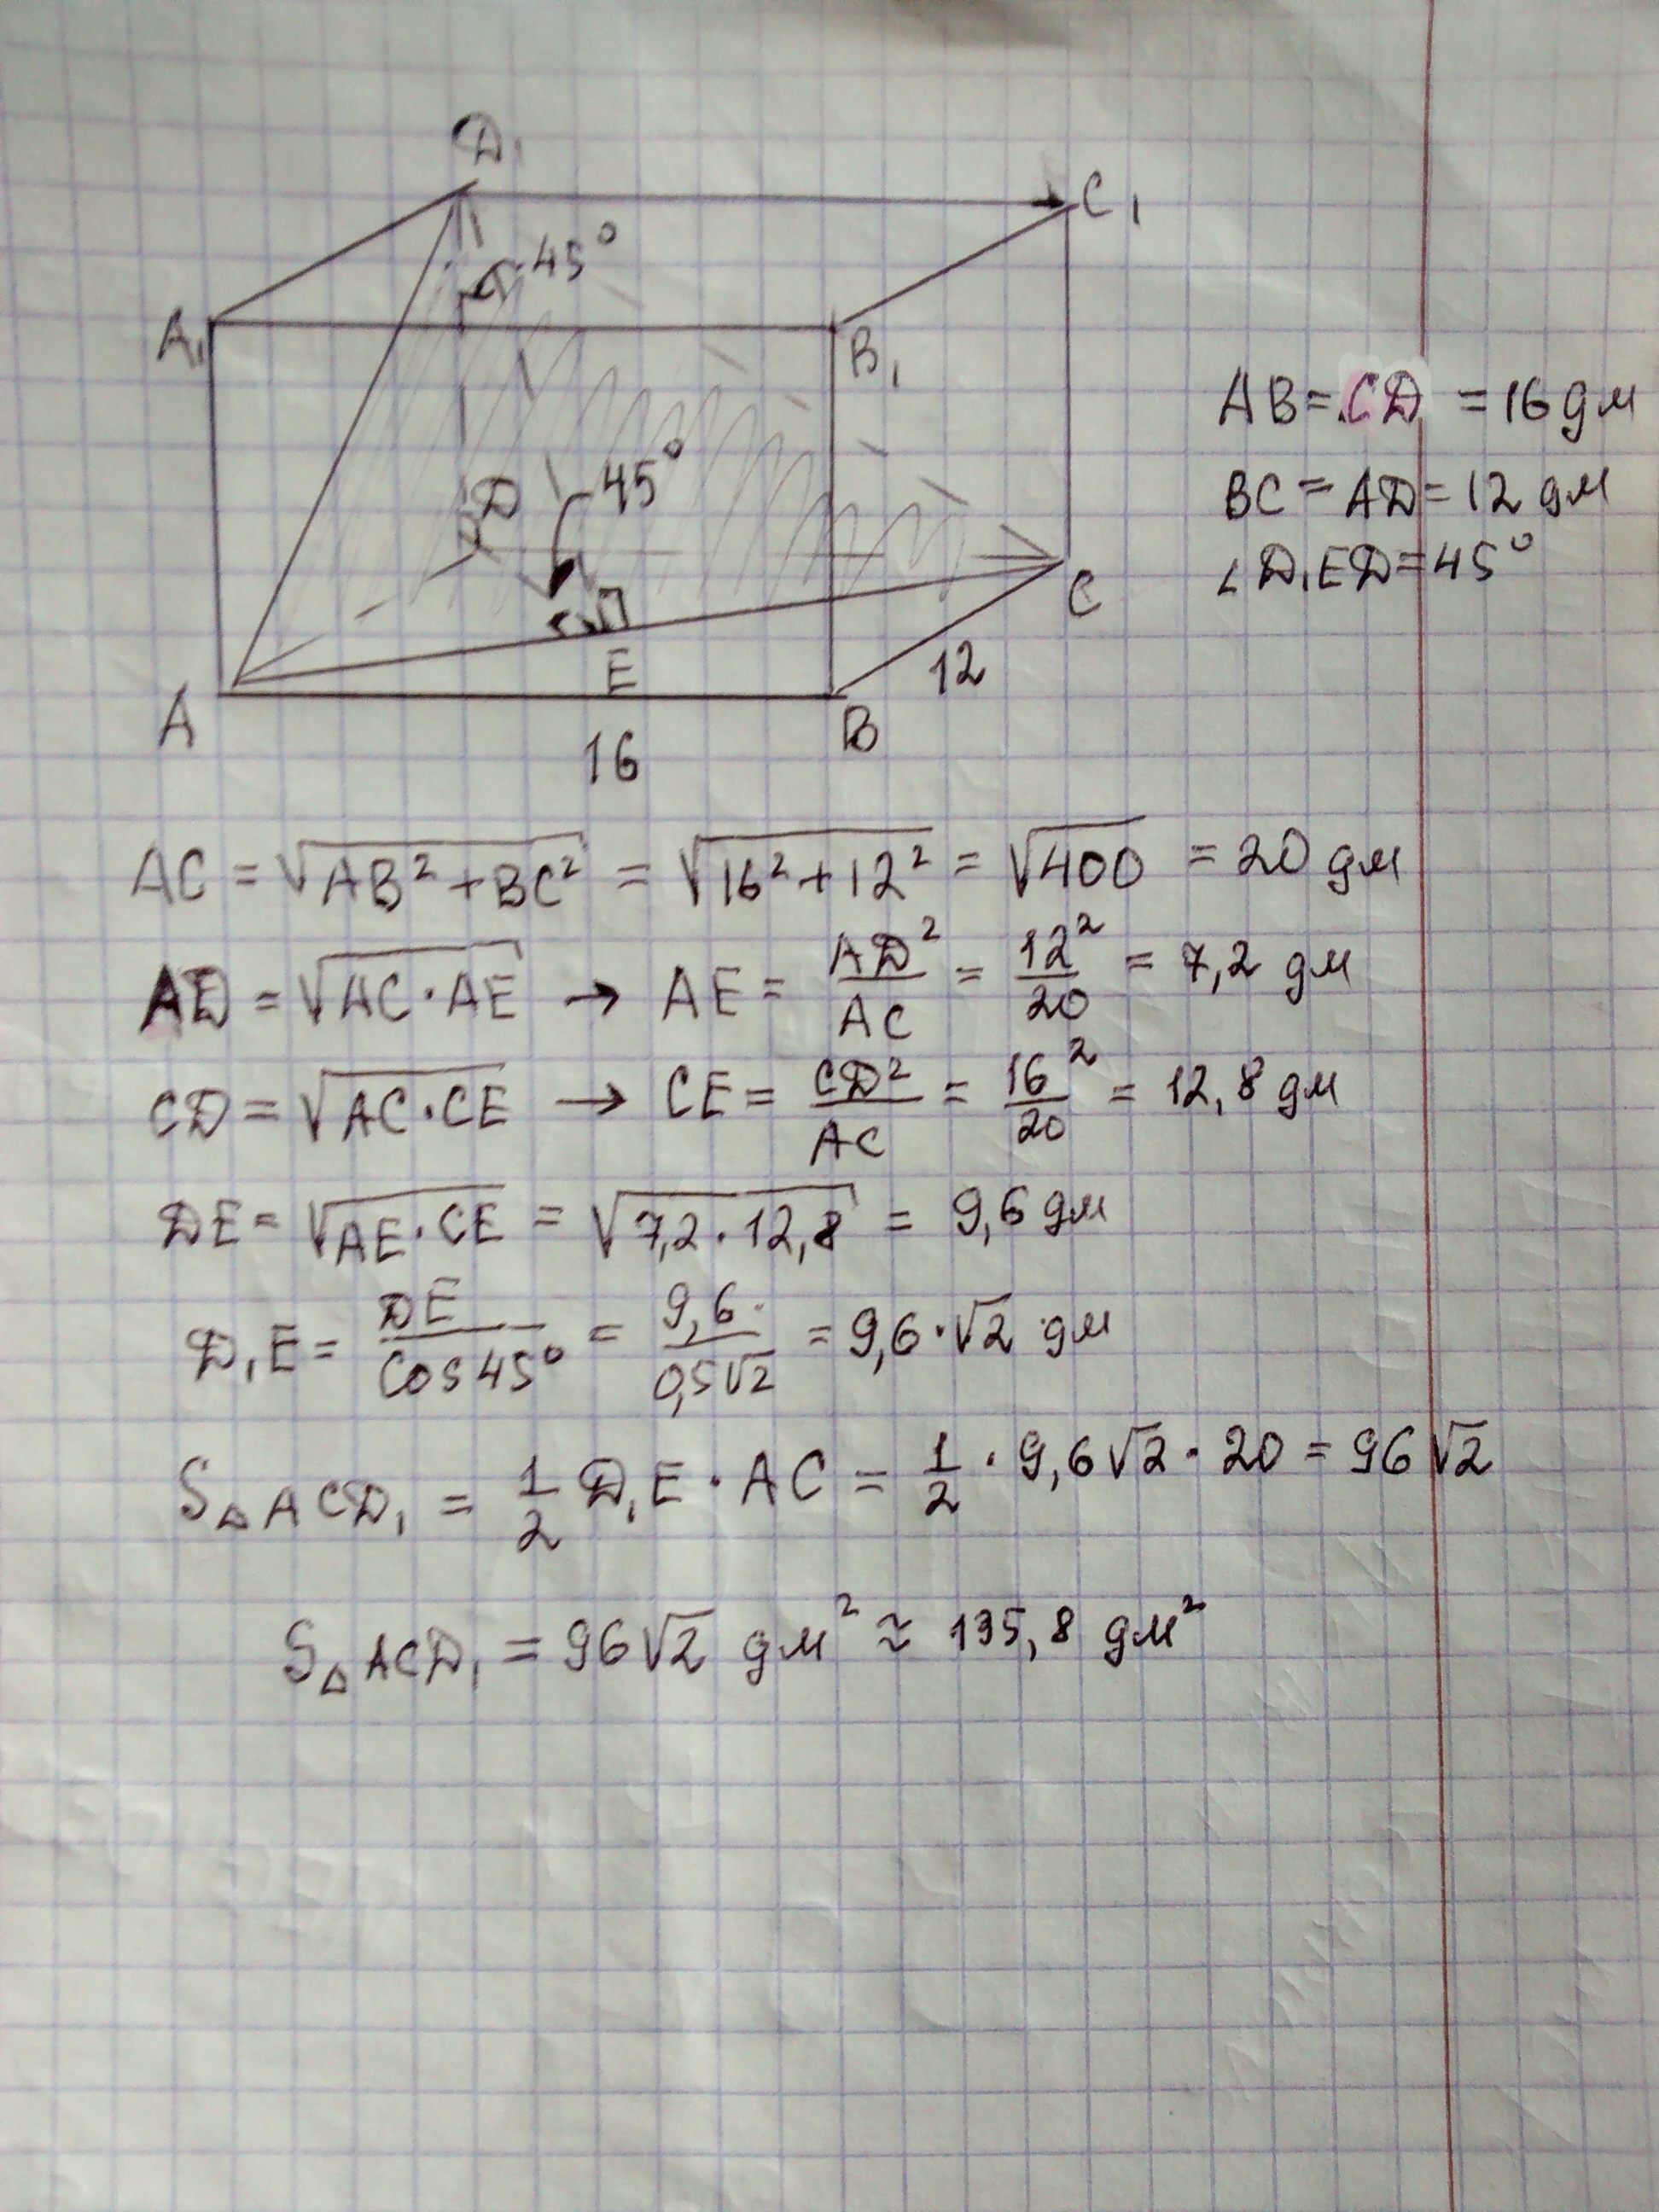 D₁
C₁
45°
A₁
B₁
D
45°
C
E
12
A
B
16
AB = CD = 16 дм
BC = AD = 12 дм
∠D₁ED = 45°
AC = √(AB² + BC²) = √(16² + 12²) = √400 = 20 дм
AD = √(AC · AE) → AE = AD²/AC = 12²/20 = 7,2 дм
CD = √(AC · CE) → CE = CD²/AC = 16²/20 = 12,8 дм
DE = √(AE · CE) = √(7,2 · 12,8) = 9,6 дм
D₁E = DE/cos 45° = 9,6/0,5√2 = 9,6 · √2 дм
S△ACD₁ = 1/2 D₁E · AC = 1/2 · 9,6√2 · 20 = 96√2
S△ACD₁ = 96√2 дм² ≈ 135,8 дм²